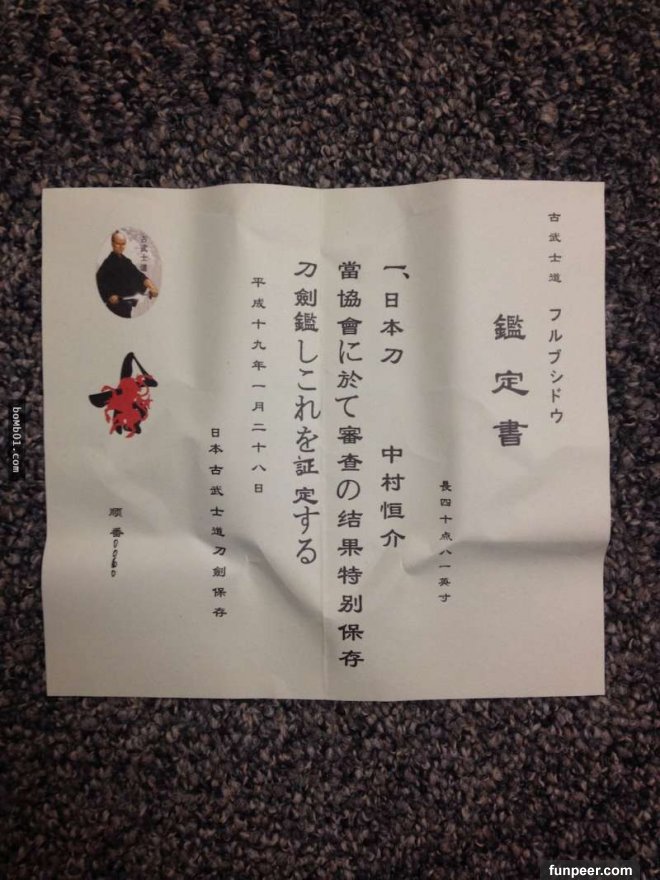 古武士道 フルブシドウ
鑑定書
長四十点八一英寸
一、日本刀 中村恒介
當協會に於て審査の结果特别保存
刀劍鑑しこれを証定する
平成十九年一月二十八日
日本古武士道刀劍保存
古武士道
顺番
boMb01.com
funpeer.com